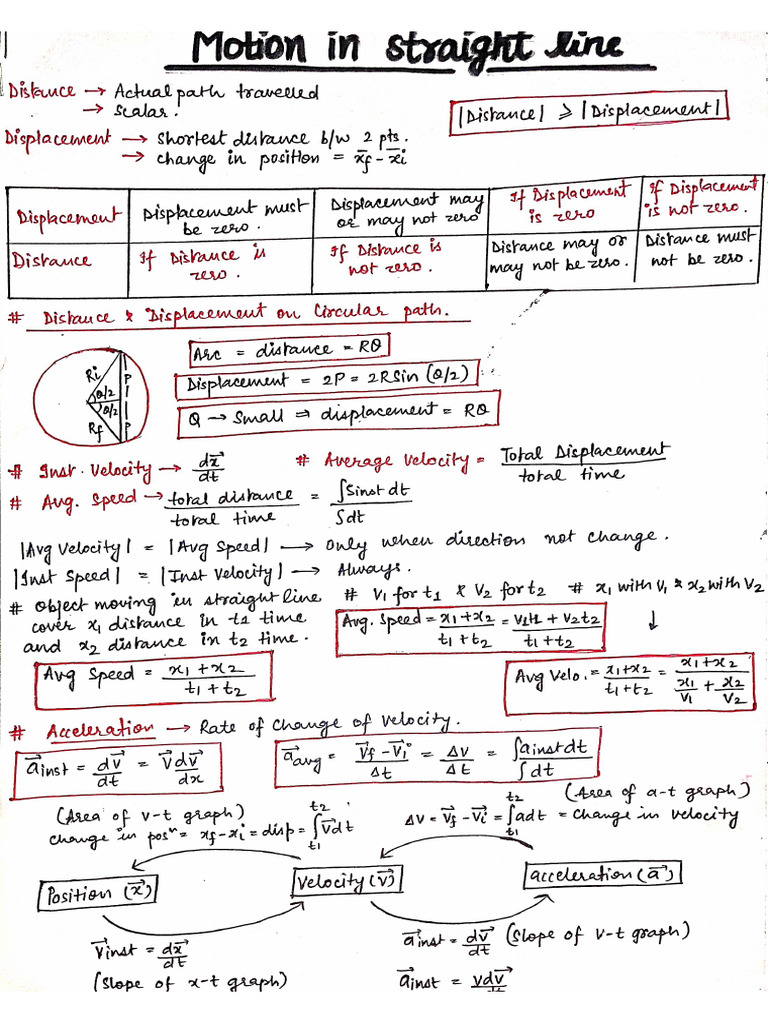 Motion in straight line
Distance → Actual path travelled
→ Scalar.
|Distance| ⩾ |Displacement|
Displacement → Shortest distance b/w 2 pts.
→ change in position = x̄f - x̄i
Displacement | Displacement must be zero. | Displacement may or may not zero | If Displacement is zero | If Displacement is not zero.
Distance | If Distance is zero. | If Distance is not zero. | Distance may or may not be zero. | Distance must not be zero.
# Distance & Displacement on Circular path.
Ri θ/2 θ/2 Rf P P
Arc = distance = Rθ
Displacement = 2P = 2RSin (θ/2)
Q → Small ⇒ displacement = Rθ
# Inst. Velocity → dx⃗/dt # Average Velocity = Total Displacement/total time
# Avg. Speed → total distance/total time = ∫Sinst dt/∫dt
|Avg Velocity| = |Avg Speed| → Only when direction not change.
|Inst Speed| = |Inst Velocity| → Always.
# Object moving in straight line
cover x1 distance in t1 time
and x2 distance in t2 time.
Avg Speed = x1 + x2/t1 + t2
# V1 for t1 & V2 for t2
Avg. Speed = x1+x2/t1+t2 = V1t1 + V2t2/t1+t2
# x1 with V1 & x2 with V2
↓
Avg Velo. = x1+x2/t1+t2 = x1+x2/x1/V1 + x2/V2
# Acceleration → Rate of Change of Velocity.
a⃗inst = dv⃗/dt = v⃗dv⃗/dx
a⃗avg = V⃗f - V⃗i/Δt = ΔV/Δt = ∫ainst dt/∫dt
(Area of v-t graph)
change in posⁿ = xf - xi = disp = ∫t1 t2 v⃗dt
(Area of a-t graph)
ΔV = V⃗f - V⃗i = ∫t1 t2 adt = Change in velocity
Position (x⃗) Velocity (v⃗) acceleration (a⃗)
v⃗inst = dx⃗/dt
(Slope of x-t graph)
a⃗inst = dv⃗/dt (Slope of v-t graph)
a⃗inst = vdv⃗